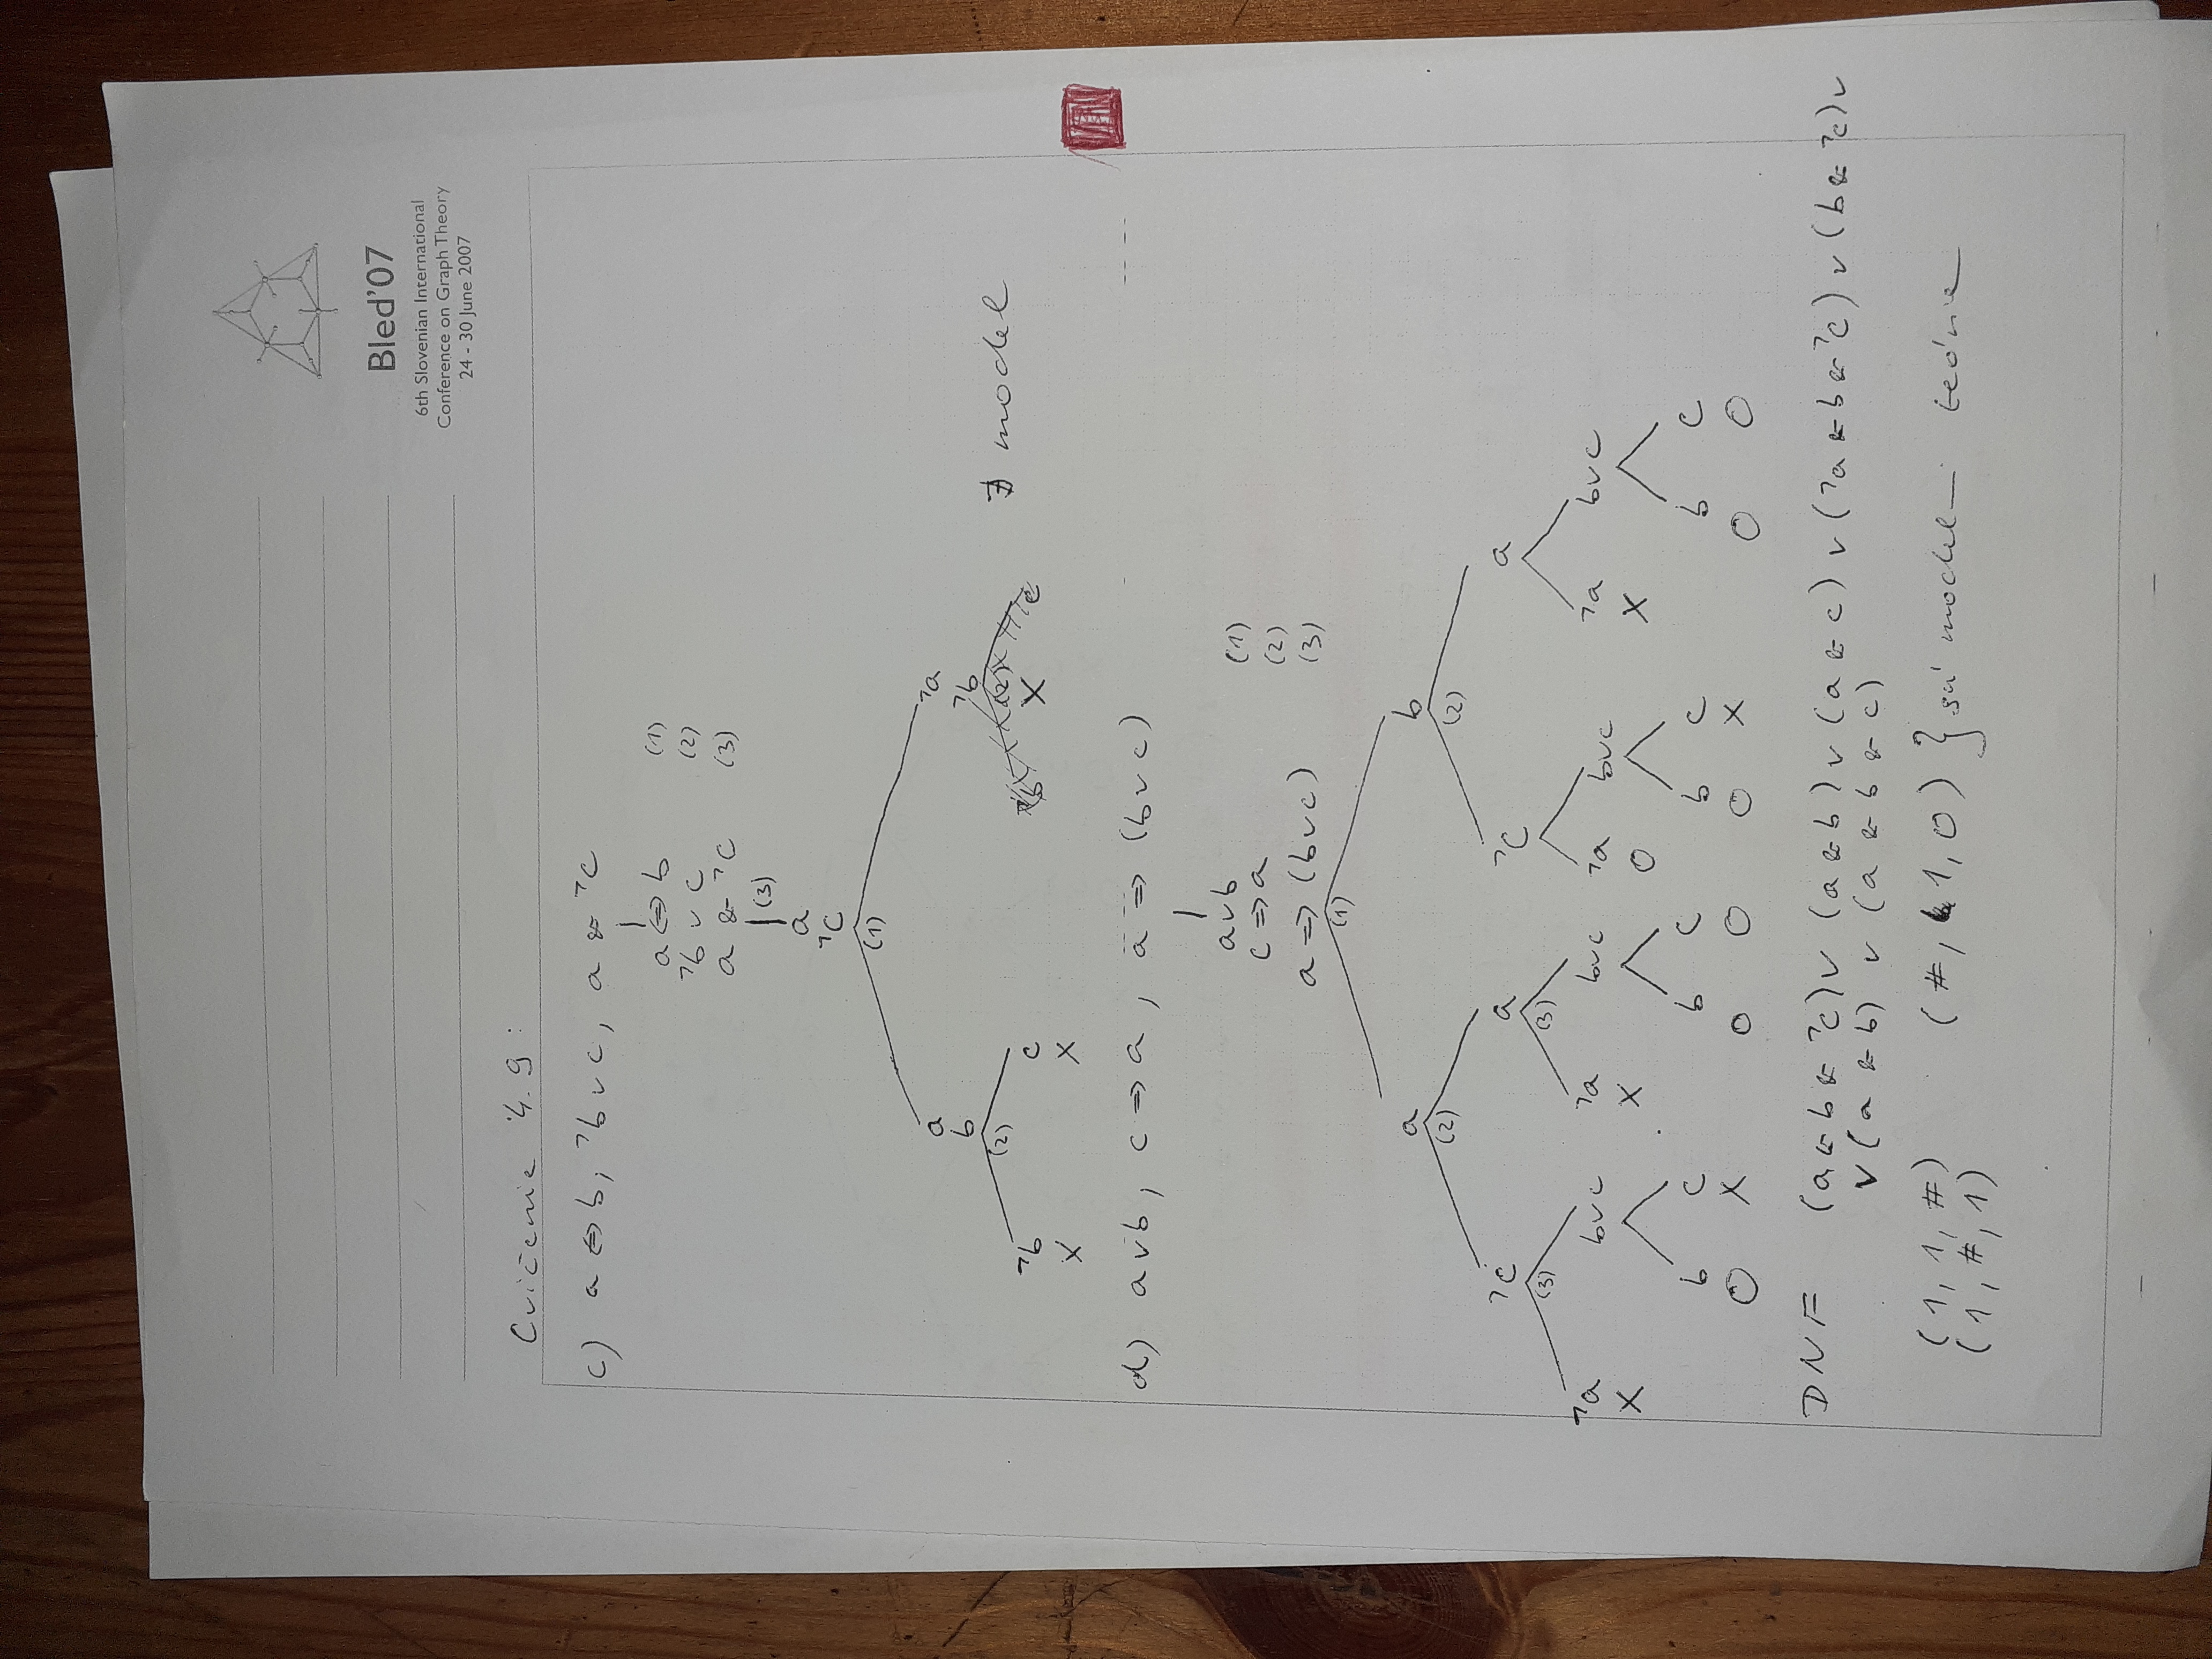 Bled'07
6th Slovenian International
Conference on Graph Theory
24 - 30 June 2007
Cvičenie 4.9:
c) a ⇔ b, ¬b ∨ c, a & ¬c
a ⇔ b (1)
¬b ∨ c (2)
a & ¬c (3)
(3)
a
¬c
(1)
a ¬a
b ¬b
(2) (2)
¬b c ¬b c
X X X
∄ model
d) a ∨ b, c ⇒ a, a ⇒ (b ∨ c)
a ∨ b (1)
c ⇒ a (2)
a ⇒ (b ∨ c) (3)
(1)
a b
(2) (2)
¬c a ¬c a
(3) (3)
¬a b∨c ¬a b∨c ¬a b∨c ¬a b∨c
X X O X
b c b c b c b c
O X O O O X O O
DNF (a & b & ¬c) ∨ (a & b) ∨ (a & c) ∨ (¬a & b & ¬c) ∨ (b & ¬c) ∨
∨ (a & b) ∨ (a & b & c)
(1, 1, #) (#, 1, 0) } sú modelmi teórie
(1, #, 1)